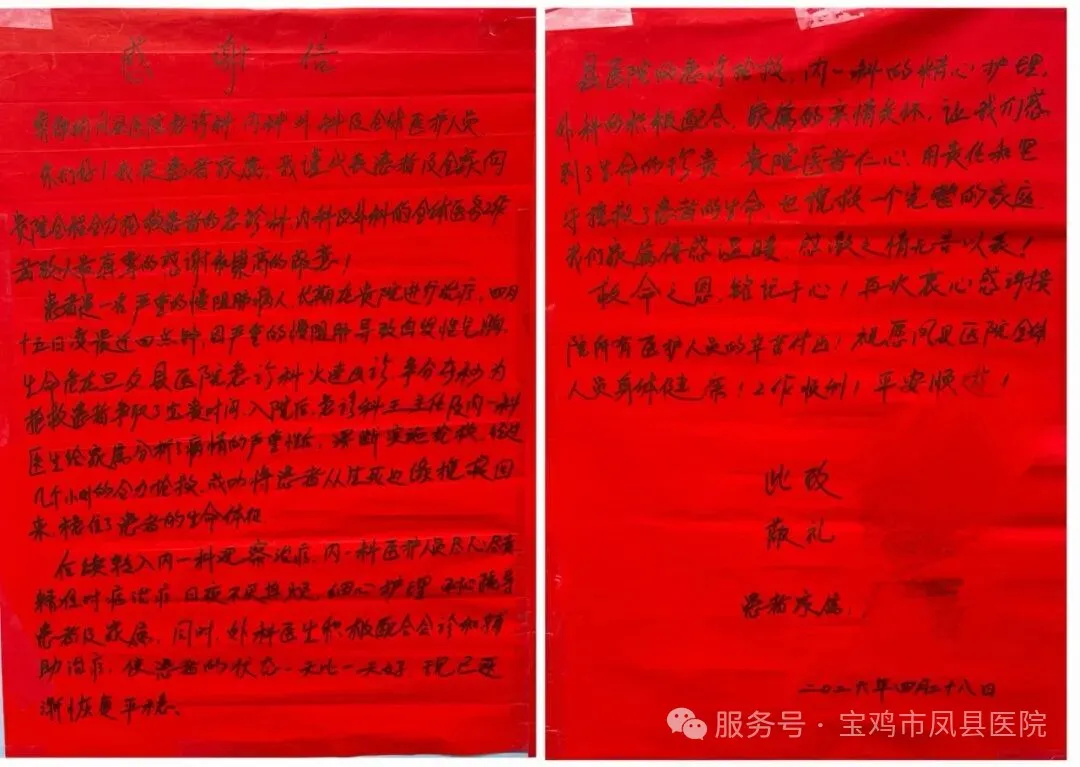 感谢信
尊敬的凤县医院急诊科 内科 外科及全体医护人员
你们好！我是患者家属，我谨代表患者及全家向
贵院全程全力抢救患者的急诊科、内科及外科的全体医务工作
者致以最真挚的感谢和崇高的敬意！
患者是一名严重的慢阻肺病人 长期在贵院进行治疗，四月
十五日凌晨近四点钟，因严重的慢阻肺导致自发性气胸，
生命危在旦夕 县医院急诊科火速出诊 争分夺秒为
抢救患者争取了宝贵时间，入院后，急诊科王主任及内一科
医生给家属分析了病情的严重性后，果断实施抢救，经过
几个小时的合力抢救，成功将患者从生死边缘挽救回
来 稳住了患者的生命体征
在后转入内一科观察治疗，内一科医护人员尽心尽责
精准对症治疗 日夜不 细心护理 耐心指导
患者及家属，同时，外科医生积极配合会诊和辅
助治疗，使患者的状态一天比一天好 现已逐
渐恢复平稳。
县医院的急诊抢救，内一科的精心护理，
外科的积极配合，家属的亲情关怀，让我们感
到了生命的珍贵 贵院医者仁心，用责任和坚
守挽救了患者的生命，也挽救一个完整的家庭
我们家属倍感温暖，感激之情无言以表！
救命之恩，铭记于心！再次衷心感谢接
院所有医护人员的辛苦付出！祝愿凤县医院全体
人员身体健康！工作顺利！平安顺！
此致
敬礼
患者家属，
二〇二六年四月二十八日
服务号·宝鸡市凤县医院